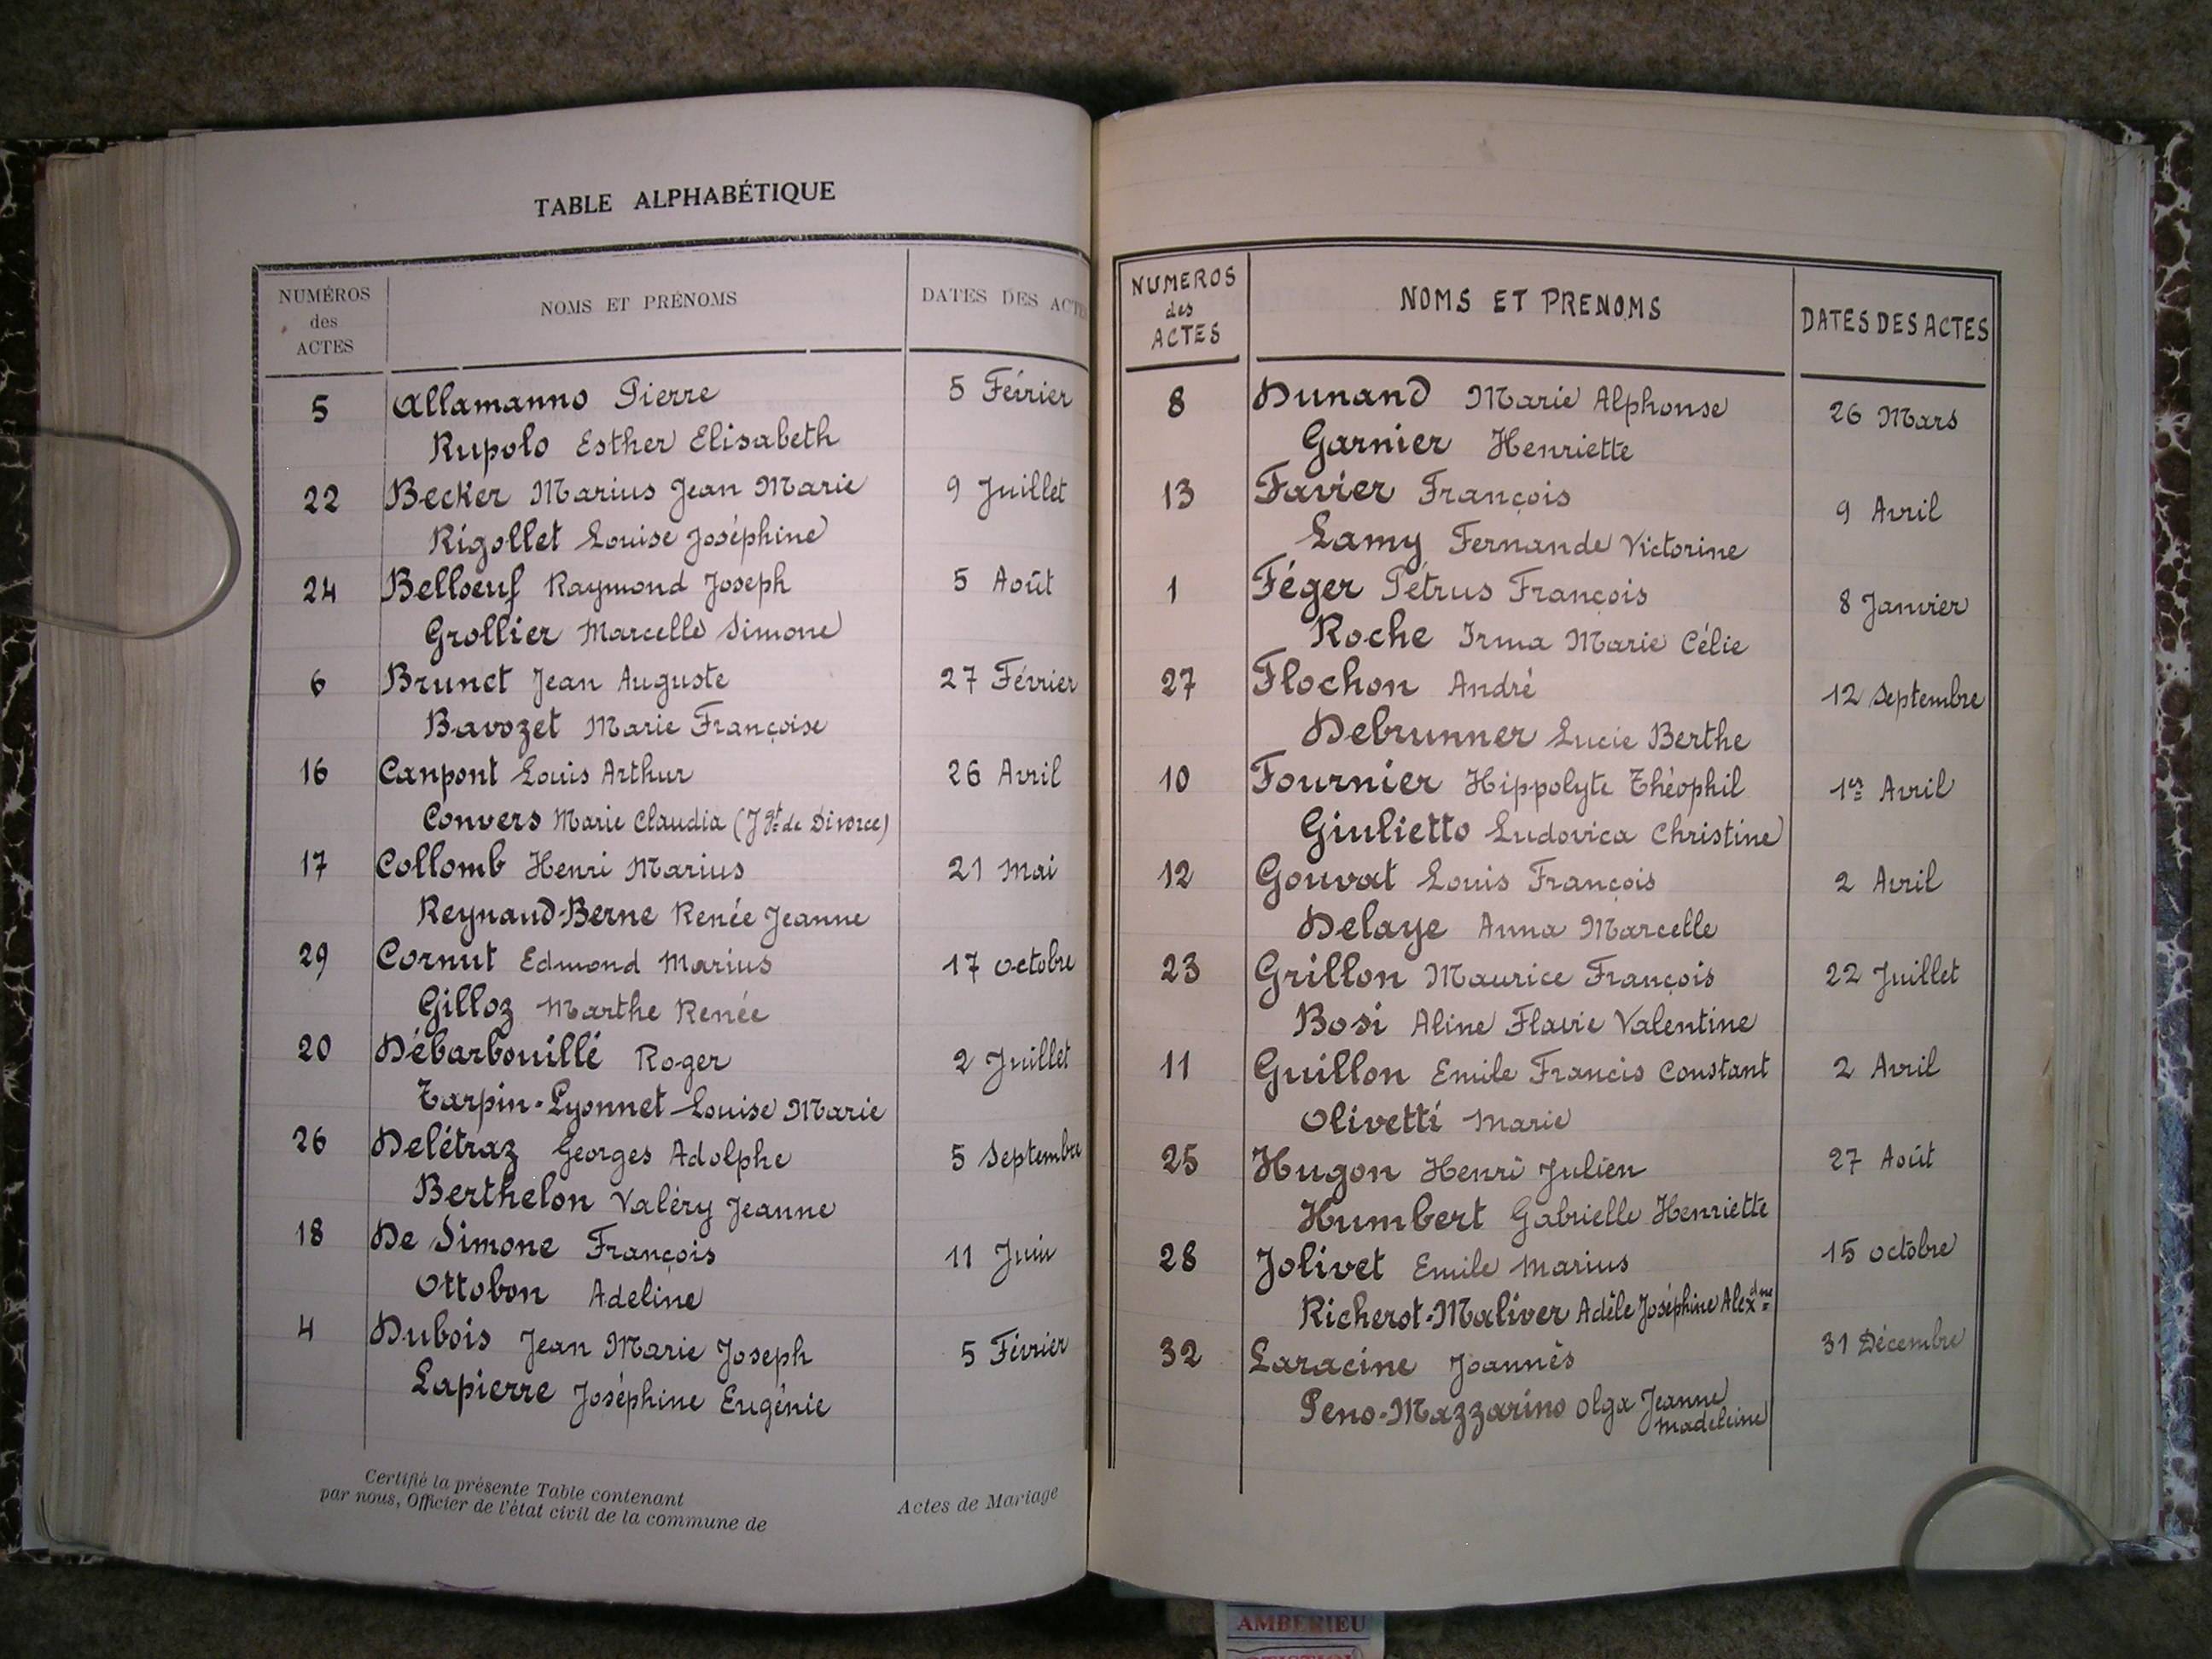 TABLE ALPHABÉTIQUE
NUMÉROS des ACTES NOMS ET PRÉNOMS DATES DES ACTE
5 Allamanno Pierre 5 Février
Rupolo Esther Elisabeth
22 Becker Marius Jean Marie 9 Juillet
Rigollet Louise Joséphine
24 Belloeuf Raymond Joseph 5 Août
Grollier Marcelle Simone
6 Brunet Jean Auguste 27 Février
Bavozet Marie Françoise
16 Canpont Louis Arthur 26 Avril
Convers Marie Claudia (Jgt de Divorce)
17 Collomb Henri Marius 21 Mai
Reynaud-Berne Renée Jeanne
29 Cornut Edmond Marius 17 octobre
Gilloz Marthe Renée
20 Débarbouillé Roger 2 Juillet
Tarpin-Lyonnet Louise Marie
26 Delétraz Georges Adolphe 5 Septembre
Berthelon Valéry Jeanne
18 De Simone François 11 Juin
Ottobon Adeline
4 Dubois Jean Marie Joseph 5 Février
Lapierre Joséphine Eugénie
Certifié la présente Table contenant Actes de Mariage
par nous, Officier de l'état civil de la commune de
NUMEROS des ACTES NOMS ET PRENOMS DATES DES ACTES
8 Dunand Marie Alphonse 26 Mars
Garnier Henriette
13 Favier François 9 Avril
Lamy Fernande Victorine
1 Féger Pétrus François 8 Janvier
Roche Irma Marie Célie
27 Flochon André 12 Septembre
Debrunner Lucie Berthe
10 Fournier Hippolyte Théophil 1er Avril
Giulietto Ludovica Christine
12 Gouvat Louis François 2 Avril
Delaye Anna Marcelle
23 Grillon Maurice François 22 Juillet
Bosi Aline Flavie Valentine
11 Guillon Emile Francis Constant 2 Avril
Olivetti Marie
25 Hugon Henri Julien 27 Août
Humbert Gabrielle Henriette
28 Jolivet Emile Marius 15 octobre
Richerot-Maliver Adèle Joséphine Alexdne
32 Laracine Joannès 31 Décembre
Peno-Mazzarino Olga Jeanne
Madeleine
AMBERIEU